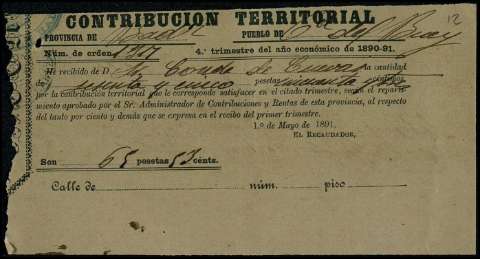 CONTRIBUCION TERRITORIAL
12
PROVINCIA DE PUEBLO DE C. del Buey
Núm. de orden 4.º trimestre del año económico de 1890-91.
He recibido de D. Conde de la cantidad
de pesetas cincuenta céntimos
por la contribución territorial que le corresponde satisfacer en el citado trimestre, según el reparti-
miento aprobado por el Sr. Administrador de Contribuciones y Rentas de esta provincia, al respecto
del tanto por ciento y demás que se expresa en el recibo del primer trimestre.
1.º de Mayo de 1891.
EL RECAUDADOR,
Son 65 pesetas 52 cénts.
Calle de núm. piso